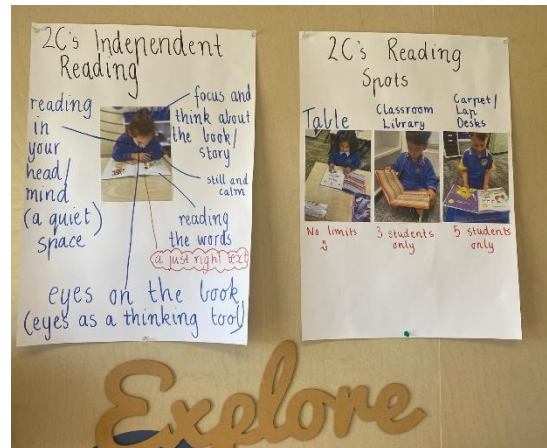 2C's Independent
Reading
reading
in
your
head/
mind
(a quiet)
space
focus and
think about
the book/
story
still and
calm
reading
the words
a just right text
eyes on the book
(eyes as a thinking tool)
2C's Reading
Spots
Table
No limits
Classroom
Library
3 students
only
Carpet/
Lap
Desks
5 students
only
Explore